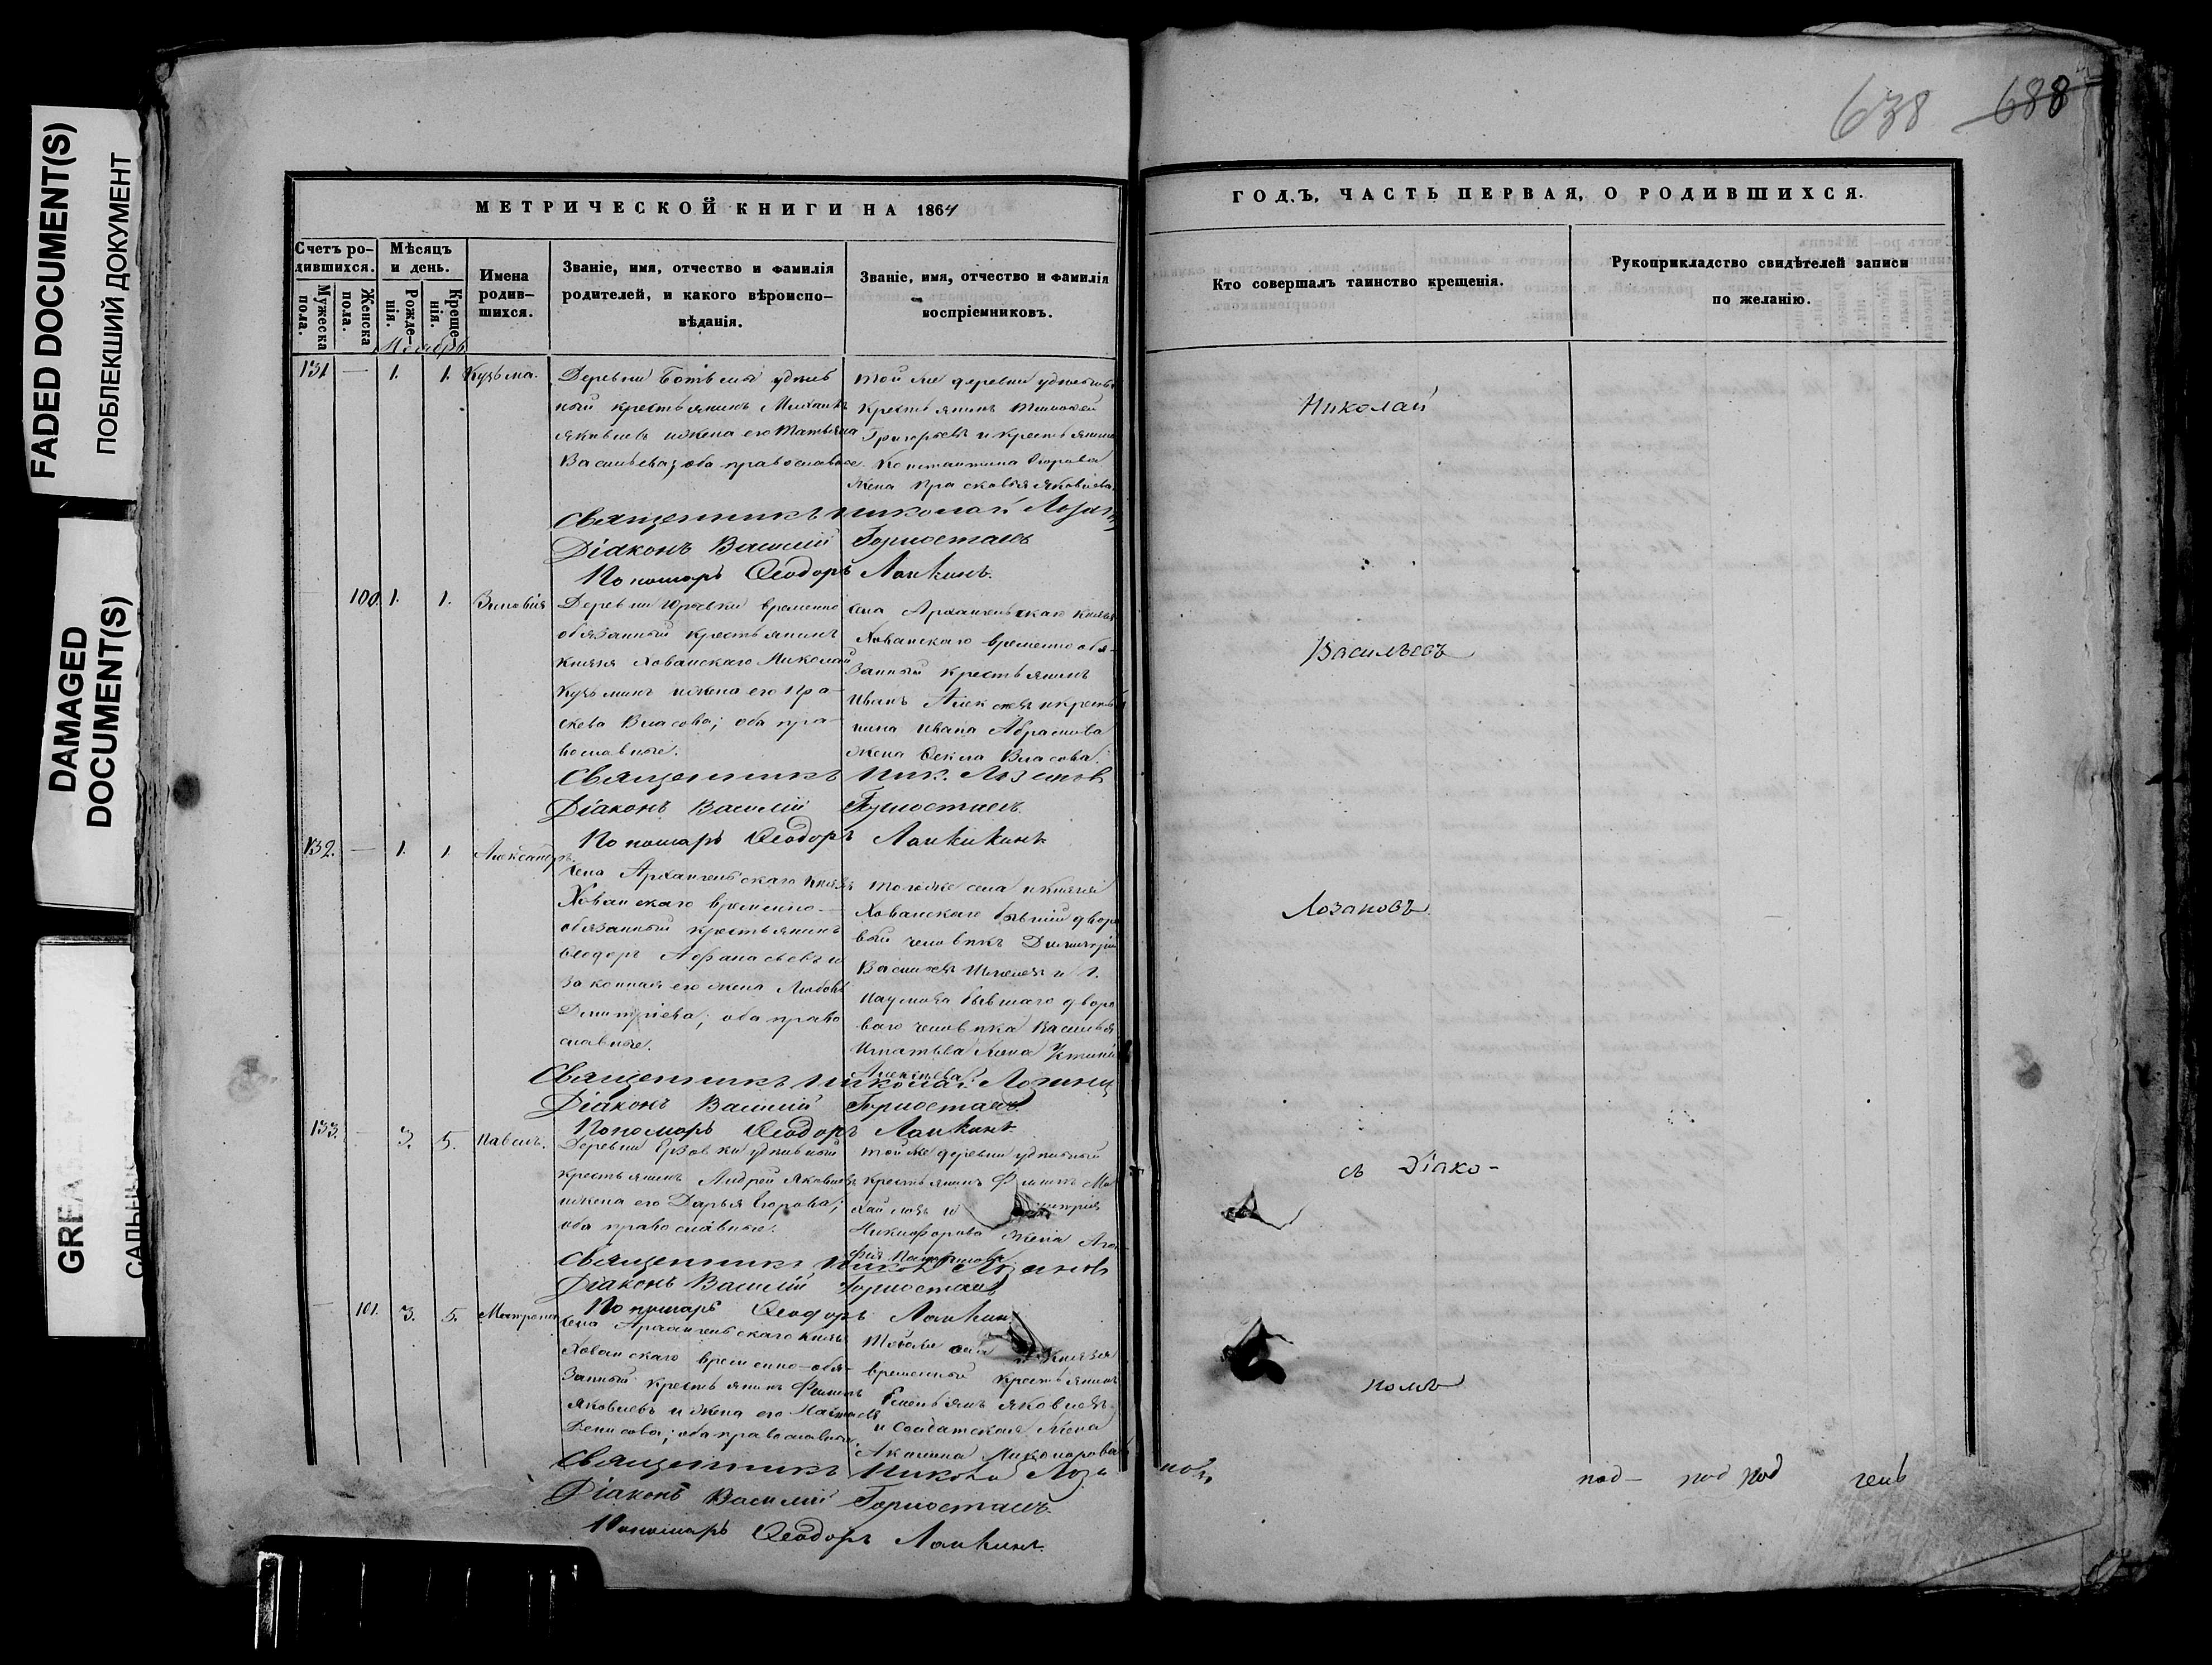 FADED DOCUMENT(S)
ПОБЛЕКШИЙ ДОКУМЕНТ
DAMAGED
DOCUMENT(S)
GREA
САЛЬНЫ
638 688
МЕТРИЧЕСКОЙ КНИГИ НА 1864
Счетъ ро-
дившихся.
Мужеска
пола.
Женска
пола.
Мѣсяцъ
и день.
Рожде-
нія.
Креще-
нія.
Ноябрь
Имена
родив-
шихся.
Званіе, имя, отчество и фамилія
родителей, и какого вѣроиспо-
вѣданія.
Званіе, имя, отчество и фамилія
воспріемниковъ.
131 — 1. 1. Кузьма.
Деревни удѣль
ный крестьянинъ Михаилъ
Яковлевъ и жена его Татьяна
Васильева; оба православные.
Той же деревни удѣльный
крестьянинъ Тимофей
Григорьевъ и крестьянина
Константина Егорова
жена Прасковья Яковлева.
Священникъ Николай Лозан
Діаконъ Василій Горностаевъ
Пономарь Ѳеодоръ Лапкинъ.
100. 1. 1. Зиновія
Деревни Юрьевки временно
обязанный крестьянинъ
Князя Хованскаго Николай
Кузьминъ и жена его Пра-
скева Власова; оба пра-
вославные.
Села Архангельскаго Князя
Хованскаго временно обя-
занный крестьянинъ
Иванъ Алексѣевъ и крестья
нина Ивана Абрамова
жена Ѳекла Власова.
Священникъ Ник. Лозановъ
Діаконъ Василій Горностаевъ
Пономарь Ѳеодоръ
132. — 1. 1. Александръ.
Села Архангельскаго Князя
Хованскаго временно-
обязанный крестьянинъ
Ѳеодоръ Афанасьевъ и
законная его жена Любовь
Димитріева; оба право
славные.
Того же села и Князя
Хованскаго бывшій дворо
вый человѣкъ Димитрій
Васильевъ и
Наумова бывшаго дворо
ваго человѣка Василья
Игнатьева жена
Алексѣева.
Священникъ Николай Лозановъ
Діаконъ Василій Горностаевъ
Пономарь Ѳеодоръ Лапкинъ.
133. — 3. 5. Павелъ.
Деревни Ерзовки удѣльный
крестьянинъ Андрей Яковлевъ
и жена его Дарья Егорова;
оба православные.
Той же деревни удѣльный
крестьянинъ Филипъ Ми
хайловъ и
Никифорова жена Ага
фія
Священникъ Никол Лозановъ
Діаконъ Василій Горностаевъ
Пономарь Ѳеодоръ Лапкинъ
— 101. 3. 5. Матрона
Села Архангельскаго Князя
Хованскаго временно-обя-
занный крестьянинъ Филипъ
Яковлевъ и жена его
Денисова; оба православные.
села и Князя
временный крестьянинъ
Емельянъ Яковлевъ
и солдатская жена
Акилина Никонорова
Священникъ Никола Лоза
Діаконъ Василій Горностаевъ
Пономарь Ѳеодоръ Лапкинъ.
ГОДЪ, ЧАСТЬ ПЕРВАЯ, О РОДИВШИХСЯ.
Кто совершалъ таинство крещенія.
Рукоприкладство свидѣтелей записи
по желанію.
Николай
Васильевъ
Лозановъ
съ Діако-
номъ
новъ под- под под